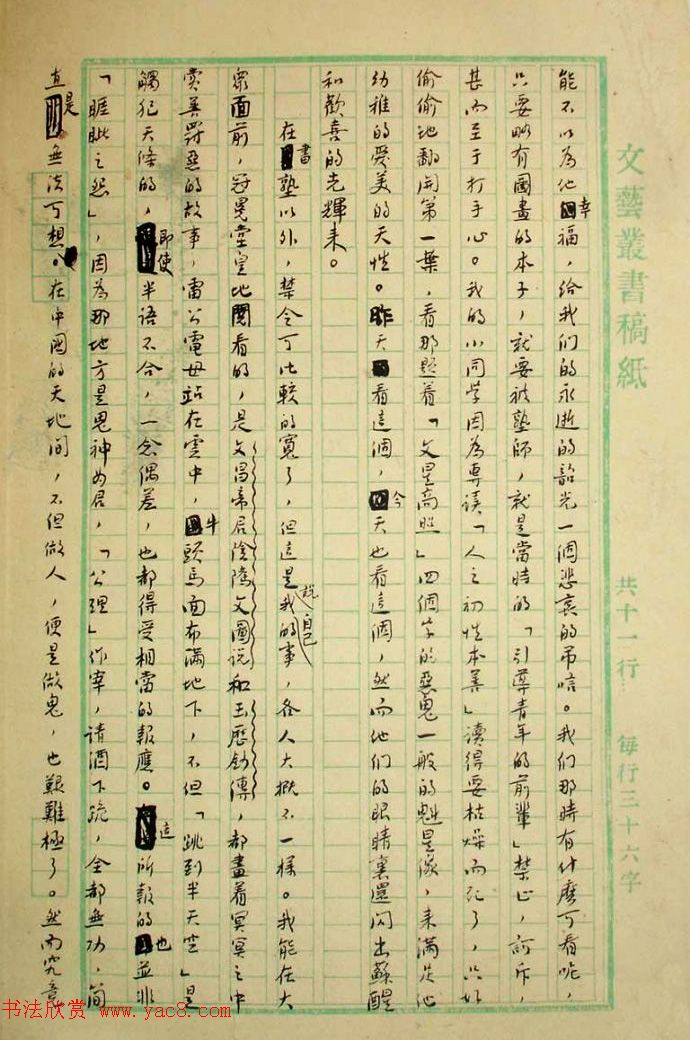 文藝叢書稿紙
共十一行 每行三十六字
能不以為他幸福，給我们的永逝的韶光一個悲哀的吊唁。我们那時有什麼可看呢，
只要略有圖畫的本子，就要被塾師，就是當時的「引導青年的前輩」禁止，訶斥，
甚而至于打手心。我的小同学因為專讀「人之初性本善」讀得要枯燥而死了，只好
偷偷地翻開第一葉，看那題着「文星高照」四個字的惡鬼一般的魁星像，来满足他
幼稚的愛美的天性。昨天看這個，今天也看這個，然而他们的眼睛裏還闪出蘇醒
和歡喜的光輝来。
在書塾以外，禁令可比較的寬了，但這是說自己的事，各人大概不一樣。我能在大
眾面前，冠冕堂皇地閱看的，是文昌帝君陰隲文圖说和玉歷鈔傳，都畫着冥冥之中
賞善罰惡的故事，雷公電母站在雲中，牛頭馬面布满地下，不但「跳到半天空」是
觸犯天條的，即使半语不合，一念偶差，也都得受相當的報應。這所報的也並非
「睚眦之怨」，因為那地方是鬼神为君，「公理」作宰，請酒下跪，全都無功，简
直是無法可想。在中國的天地间，不但做人，便是做鬼，也艱難極了。然而究竟
书法欣赏 www.yac8.com